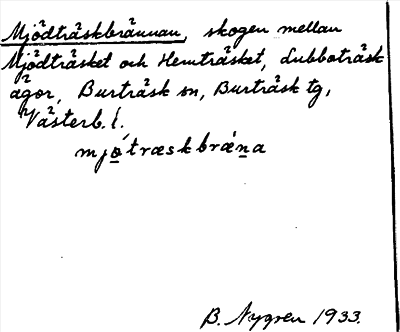 Mjödträskbrännan, skogen mellan
Mjödträsket och Hemträsket, Lubboträsk
ägor, Burträsk sn, Burträsk tg,
Västerb. l.
mjọ́træskbrǽṉa
B. Nygren 1933.